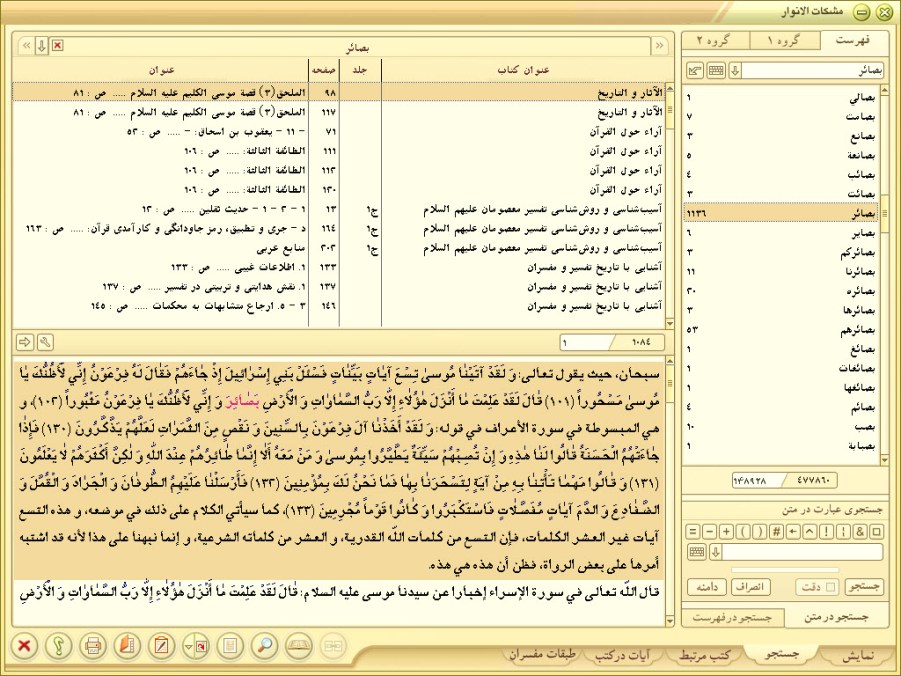 مشکات الانوار
فهرست
گروه ۱
گروه ۲
بصائر
بصالي ۱
بصامت ۷
بصانع ۳
بصانعة ۵
بصائب ٤
بصائت ۳
بصائر ۱۱۳٦
بصاير ٦
بصائركم ۳
بصائرنا ۱۱
بصائره ۳۰
بصائرها ۳
بصائرهم ۵۳
بصائغ ۱
بصائغات ۱
بصائغها ۱
بصائم ٤
بصب ۱۰
بصبابة ۱
٤۷۷۸٦۰ / ۱٤۸۹۲۸
جستجوی عبارت در متن
= − + ( ) # ← ^ ! ¦ & □
جستجو
دقت
انصراف
دامنه
جستجو در متن
جستجو در فهرست
بصائر
عنوان کتاب جلد صفحه عنوان
الآثار و التاريخ ۹۸ الملحق(۳) قصة موسى الكليم عليه السلام ..... ص : ۸۱
الآثار و التاريخ ۱۱۷ الملحق(۳) قصة موسى الكليم عليه السلام ..... ص : ۸۱
آراء حول القرآن ۷۱ - ۱۱ - يعقوب بن اسحاق: - ..... ص : ۵۳
آراء حول القرآن ۱۱۱ الطائفة الثالثة: ..... ص : ۱۰٦
آراء حول القرآن ۱۱۳ الطائفة الثالثة: ..... ص : ۱۰٦
آراء حول القرآن ۱۲۰ الطائفة الثالثة: ..... ص : ۱۰٦
آسیب‌شناسی و روش‌شناسی تفسیر معصومان علیهم السلام ج۱ ۱۳ ۱ - ۲ - ۱ - حدیث ثقلین ..... ص : ۱۲
آسیب‌شناسی و روش‌شناسی تفسیر معصومان علیهم السلام ج۱ ۱٦٤ د - جری و تطبیق، رمز جاودانگی و کارآمدی قرآن: ..... ص : ۱٦۳
آسیب‌شناسی و روش‌شناسی تفسیر معصومان علیهم السلام ج۱ ۳۰۳ منابع عربی
آشنایی با تاریخ تفسیر و مفسران ۱۳۳ ۱. اطلاعات غیبی ..... ص : ۱۳۳
آشنایی با تاریخ تفسیر و مفسران ۱۳۷ ۱. نقش هدایتی و تربیتی در تفسیر ..... ص : ۱۳۷
آشنایی با تاریخ تفسیر و مفسران ۱٤٦ ۳ - ۵. ارجاع متشابهات به محکمات ..... ص : ۱٤۵
۱۰۸٤ / ۱
سبحان، حيث يقول تعالى: وَ لَقَدْ آتَيْنَا مُوسى‏ تِسْعَ آياتٍ بَيِّناتٍ فَسْئَلْ بَنِي إِسْرائِيلَ إِذْ جاءَهُمْ فَقالَ لَهُ فِرْعَوْنُ إِنِّي لَأَظُنُّكَ يا
مُوسى‏ مَسْحُوراً (۱۰۱) قالَ لَقَدْ عَلِمْتَ ما أَنْزَلَ هؤُلاءِ إِلَّا رَبُّ السَّماواتِ وَ الْأَرْضِ بَصائِرَ وَ إِنِّي لَأَظُنُّكَ يا فِرْعَوْنُ مَثْبُوراً (۱۰۲)، و
هي المبسوطة في سورة الأعراف في قوله: وَ لَقَدْ أَخَذْنا آلَ فِرْعَوْنَ بِالسِّنِينَ وَ نَقْصٍ مِنَ الثَّمَراتِ لَعَلَّهُمْ يَذَّكَّرُونَ (۱۳۰) فَإِذا
جاءَتْهُمُ الْحَسَنَةُ قالُوا لَنا هذِهِ وَ إِنْ تُصِبْهُمْ سَيِّئَةٌ يَطَّيَّرُوا بِمُوسى‏ وَ مَنْ مَعَهُ أَلا إِنَّما طائِرُهُمْ عِنْدَ اللَّهِ وَ لكِنَّ أَكْثَرَهُمْ لا يَعْلَمُونَ
(۱۳۱) وَ قالُوا مَهْما تَأْتِنا بِهِ مِنْ آيَةٍ لِتَسْحَرَنا بِها فَما نَحْنُ لَكَ بِمُؤْمِنِينَ (۱۳۲) فَأَرْسَلْنا عَلَيْهِمُ الطُّوفانَ وَ الْجَرادَ وَ الْقُمَّلَ وَ
الضَّفادِعَ وَ الدَّمَ آياتٍ مُفَصَّلاتٍ فَاسْتَكْبَرُوا وَ كانُوا قَوْماً مُجْرِمِينَ (۱۳۳)، كما سيأتي الكلام على ذلك في موضعه، و هذه التسع
آيات غير العشر الكلمات، فإن التسع من كلمات اللّه القدرية، و العشر من كلماته الشرعية، و إنما نبهنا على هذا لأنه قد اشتبه
أمرها على بعض الرواة، فظن أن هذه هي هذه.
قال اللّه تعالى في سورة الإسراء إخبارا عن سيدنا موسى عليه السلام: قالَ لَقَدْ عَلِمْتَ ما أَنْزَلَ هؤُلاءِ إِلَّا رَبُّ السَّماواتِ وَ الْأَرْضِ
نمایش
جستجو
کتب مرتبط
آیات در کتب
طبقات مفسران